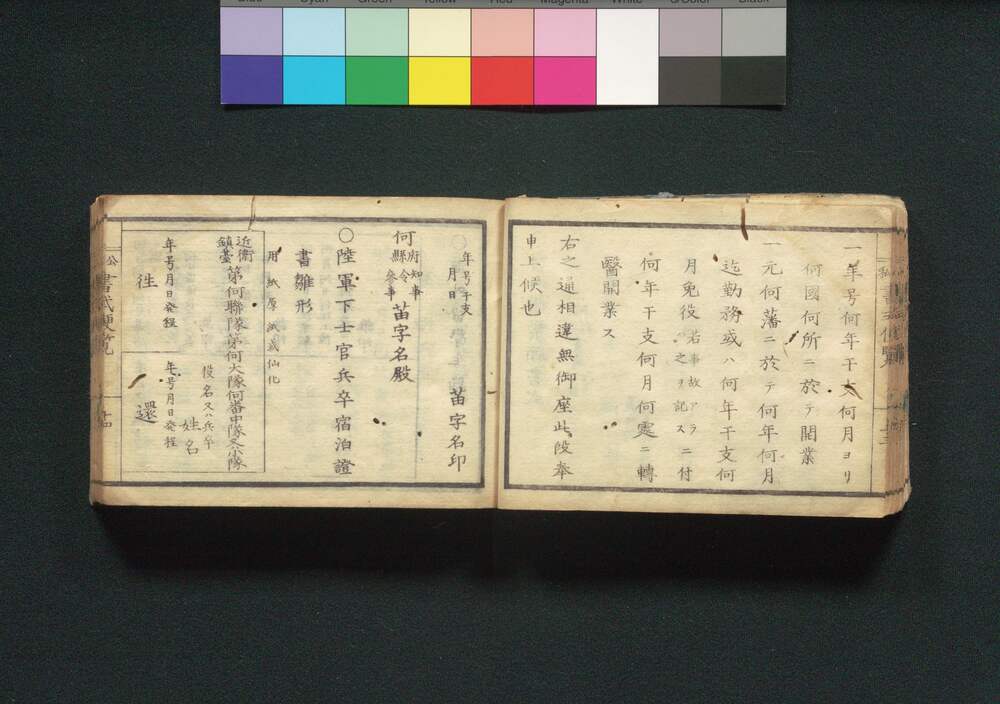 Cyan
Green
Yellow
Red
Magenta
White
3/Color
Black
一年号何年干支何月ヨリ
何國何所ニ於テ開業
一元何藩ニ於テ何年何月
迄勤務或ハ何年干支何
月免役若事故アラハ之ヲ記スニ付
何年干支何月何處ニ轉
醫開業ス
右之通相違無御座此段奉
申上候也
年号干支
月日
苗字名印
何府知事
縣令
參事
苗字名殿
〇陸軍下士官兵卒宿泊證
書雛形
用紙厚紙或仙化
近衛
鎮臺
第何聯隊第何大隊何番中隊又小隊
役名又ハ兵卒
姓名
年号月日発程
往
年号月日発程
還
公
書式便覧
十四